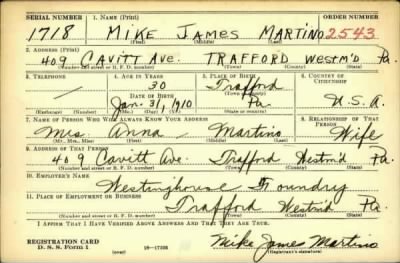 SERIAL NUMBER 1. NAME (Print) ORDER NUMBER
1718 MIKE JAMES MARTINO 2543
(First) (Middle) (Last)
2. ADDRESS (Print)
409 CAVITT AVE. TRAFFORD WESTM'D PA.
(Number and street or R. F. D. number) (Town) (County) (State)
3. TELEPHONE 4. AGE IN YEARS 5. PLACE OF BIRTH 6. COUNTRY OF CITIZENSHIP
30 Trafford
DATE OF BIRTH (Town or county)
Jan. 31, 1910 Pa. U.S.A.
(Exchange) (Number) (Mo.) (Day) (Yr.) (State or country)
7. NAME OF PERSON WHO WILL ALWAYS KNOW YOUR ADDRESS 8. RELATIONSHIP OF THAT PERSON
Mrs. Anna Martino Wife
(Mr., Mrs., Miss) (First) (Middle) (Last)
9. ADDRESS OF THAT PERSON
409 Cavitt Ave. Trafford Westm'd Pa.
(Number and street or R. F. D. number) (Town) (County) (State)
10. EMPLOYER'S NAME
Westinghouse Foundry
11. PLACE OF EMPLOYMENT OR BUSINESS
Trafford Westm'd Pa.
(Number and street or R. F. D. number) (Town) (County) (State)
I AFFIRM THAT I HAVE VERIFIED ABOVE ANSWERS AND THAT THEY ARE TRUE.
REGISTRATION CARD
D. S. S. Form 1 (over) 16—17105 Mike James Martino
(Registrant's signature)